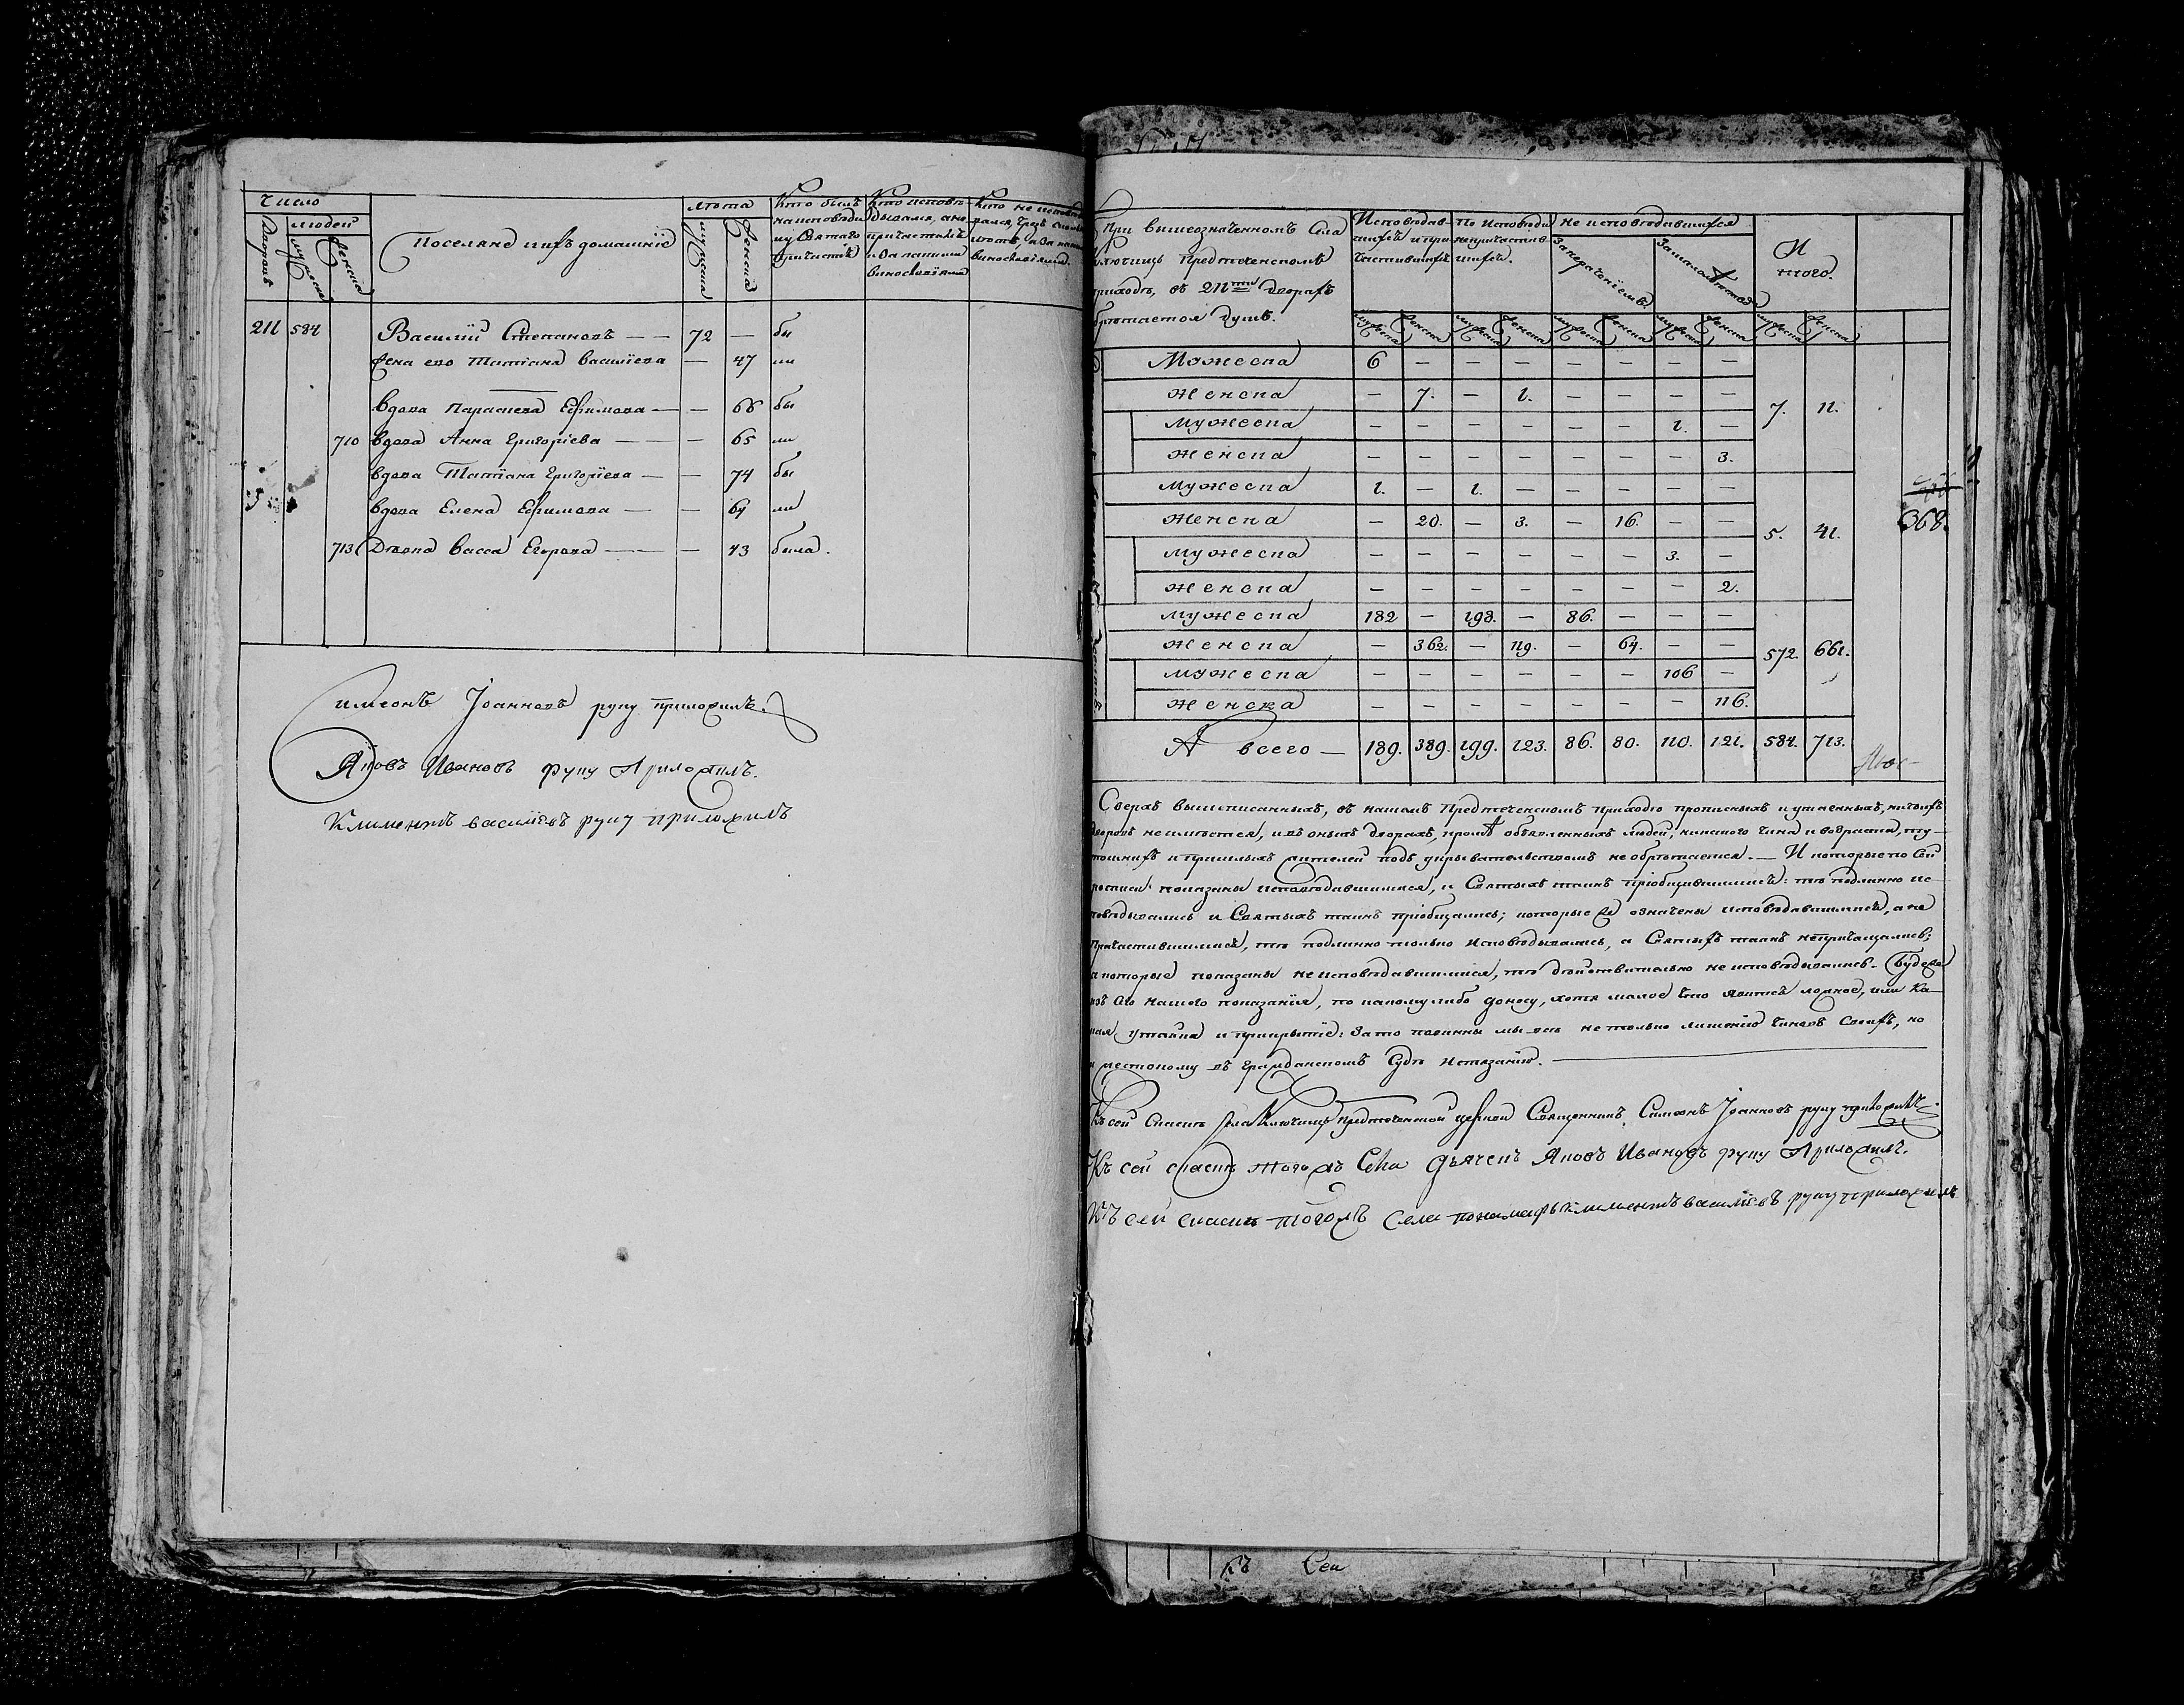 Число
людей
Дворовъ
мужеска
женска
Поселяне ихъ домашніе
лѣта
мужеска
женска
Кто былъ
на исповѣди
и у Святаго
причастія
Кто исповѣ-
дывался, а не
причастился
и за какими
винословіями
Кто не исповѣ
винословіями.
211 584 Василій Степановъ — — 72 — бы
Жена ево Татіана Василіева — 47 ли
Вдова Параскева Ефимова — — 66 бы
710 Вдова Анна Григоріева — — — 65 ли
Вдова Татіана Григоріева — — 74 бы
Вдова Елена Ефимова — — 64 ли
713 Дѣвка Васса Егорова — — — 43 была.
Симеонъ Іоанновъ руку приложилъ.
Яковъ Ивановъ руку Приложилъ.
Климентъ василіевъ руку приложилъ
При вышеозначенномъ Села
Ключищъ Предтеченскомъ
приходѣ, въ 211ти дворахъ
обрѣтается душъ.
Исповѣдав-
шихся и при
частившихся
По исповѣди
непричастив-
шихся.
Не исповѣдавшихся
За отлученіемъ
За малолѣтствомъ
И
того.
мужеска женска мужеска женска мужеска женска мужеска женска мужеска женска
Мужеска 6 — — — — — — —
Женска — 7. — 1. — — — —
7. 11.
Мужеска — — — — — — 1. —
Женска — — — — — — — 3.
Мужеска 1. — 1. — — — — —
368.
Женска — 20. — 3. — 16. — —
5. 41.
Мужеска — — — — — — 3. —
Женска — — — — — — — 2.
Мужеска 182 — 198. — 86. — — —
Женска — 362. — 119. — 64. — —
572. 661.
Мужеска — — — — — — 106 —
Женска — — — — — — — 116.
А всего — 189. 389. 199. 123. 86. 80. 110. 121. 584. 713.
Сверхъ вышеписанныхъ, въ нашемъ Предтеченскомъ приходѣ прописныхъ и утаенныхъ, ничьихъ
дворовъ не имѣется, и въ оныхъ дворахъ, кромѣ объявленныхъ людей, никакого чина и возраста, ту-
тошнихъ и пришлыхъ жителей подъ укрывательствомъ не обрѣтается. — И которые по сей
росписи показаны исповѣдавшимися, и Святыхъ таинъ пріобщившимися: тѣ подлинно ис-
повѣдывались и Святыхъ таинъ пріобщались; которые же означены исповѣдавшимися, а не
причастившимися, тѣ подлинно только исповѣдывались, а Святыхъ таинъ непричащались;
а которые показаны не исповѣдавшимися, тѣ дѣйствительно не исповѣдывались. Буде же
изъ сего нашего показанія, по какому либо доносу, хотя малое что явится ложное, или ка-
кая утайка и прикрытіе: за то повинны мы не только лишенію чиновъ своихъ, но
и жестокому въ гражданскомъ судѣ истязанію. —
Къ сей росписи села Ключищъ Предтеченской церкви Священникъ Симеонъ Іоанновъ руку приложилъ.
Къ сей росписи тогожъ Села Дьячекъ Яковъ Ивановъ руку Приложилъ.
Къ сей росписи тогожъ Села пономарь климентъ василіевъ руку приложилъ
Къ Сеи